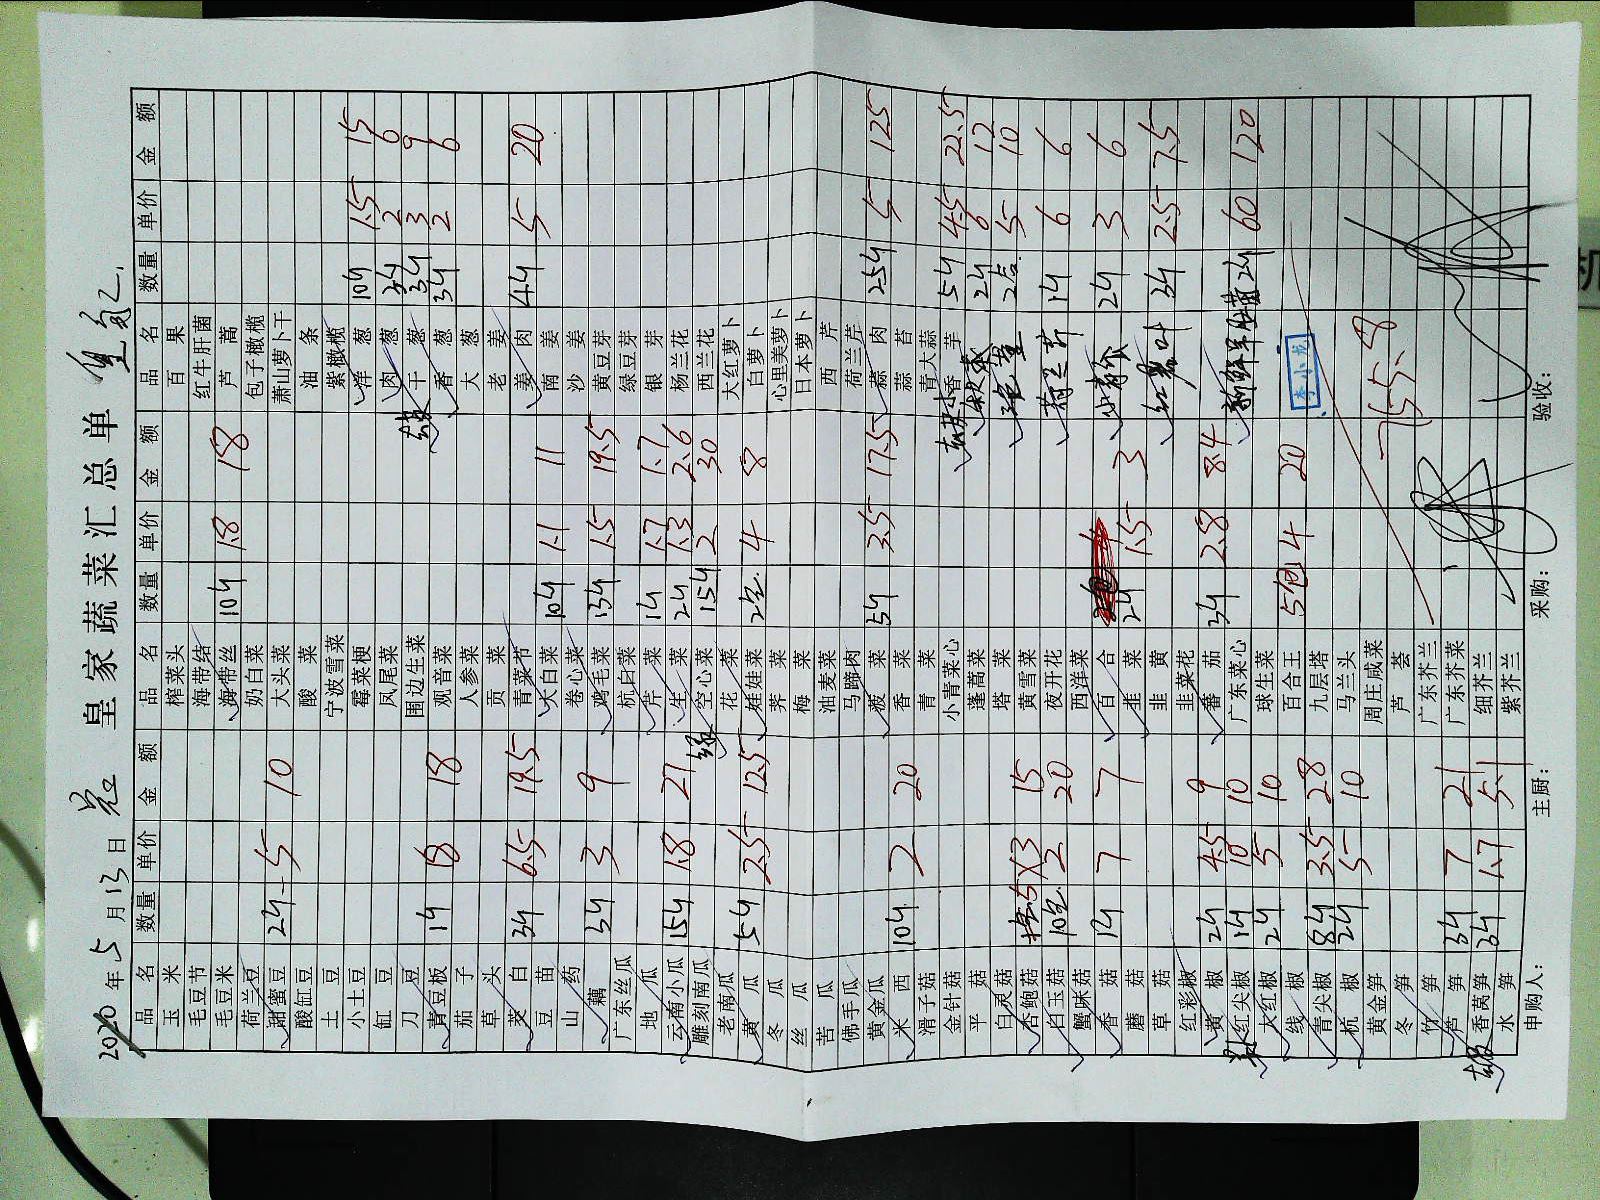 皇家蔬菜汇总单
2020年5月13日
品名 数量 单价 金额 品名 数量 单价 金额 品名 数量 单价 金额
玉米 榨菜头 百果
毛豆节 海带结 红牛肝菌
毛豆米 海带丝 10斤 1.8 18 芦蒿
荷兰豆 奶白菜 包子橄榄
甜蜜豆 2斤 5 10 大头菜 萧山萝卜干
酸缸豆 酸菜 油条
土豆 宁波雪菜 紫橄榄
小土豆 霉菜梗 洋葱 10斤 1.5 15
缸豆 凤尾菜 肉葱 3斤 2 6
刀豆 围边生菜 干葱 3斤 3 9
青豆板 1斤 18 18 观音菜 香葱 3斤 2 6
茄子 人参菜 大葱
草头 贡菜 老姜
茭白 3斤 6.5 19.5 青菜节 姜肉 4斤 5 20
豆苗 大白菜 10斤 1.1 11 南姜
山药 卷心菜 沙姜
藕 3斤 3 9 鸡毛菜 13斤 1.5 19.5 黄豆芽
广东丝瓜 杭白菜 绿豆芽
地瓜 芹菜 1斤 1.7 1.7 银芽
云南小瓜 15斤 1.8 27 生菜 2斤 1.3 2.6 杨兰花
雕刻南瓜 空心菜 15斤 2 30 西兰花
老南瓜 花菜 大红萝卜
黄瓜 5斤 2.5 12.5 娃娃菜 2包 4 8 白萝卜
冬瓜 荠菜 心里美萝卜
丝瓜 梅菜 日本萝卜
苦瓜 油麦菜 西芹
佛手瓜 马蹄肉 荷兰芹
黄金瓜 菠菜 5斤 3.5 17.5 蒜肉 25斤 5 125
米西 10斤 2 20 香菜 蒜苔
滑子菇 青菜 青大蒜
金针菇 小青菜心 小香芋 5斤 4.5 22.5
平菇 蓬蒿菜 2斤 6 12
白灵菇 塔菜 5 10
杏鲍菇 5×3 15 黄雪菜
白玉菇 10包 2 20 夜开花 荷兰芹 1斤 6 6
蟹味菇 西洋菜
香菇 1斤 7 7 百合 2斤 3 6
蘑菇 韭菜 2斤 1.5 3
草菇 韭黄 红薯叶 3斤 2.5 7.5
红彩椒 韭菜花
黄椒 2斤 4.5 9 番茄 3斤 2.8 8.4
红尖椒 1斤 10 10 广东菜心 新鲜羊肚菌 2斤 60 120
大红椒 2斤 5 10 球生菜
线椒 百合王 5包 4 20
青尖椒 8斤 3.5 28 九层塔 李小龙
杭椒 2斤 5 10 马兰头
黄金笋 周庄咸菜
冬笋 芦荟 755.8
竹笋 广东芥兰
芦笋 3斤 7 21 广东芥菜
香莴笋 3斤 1.7 5.1 细芥兰
水笋 紫芥兰
申购人： 主厨： 采购： 验收：